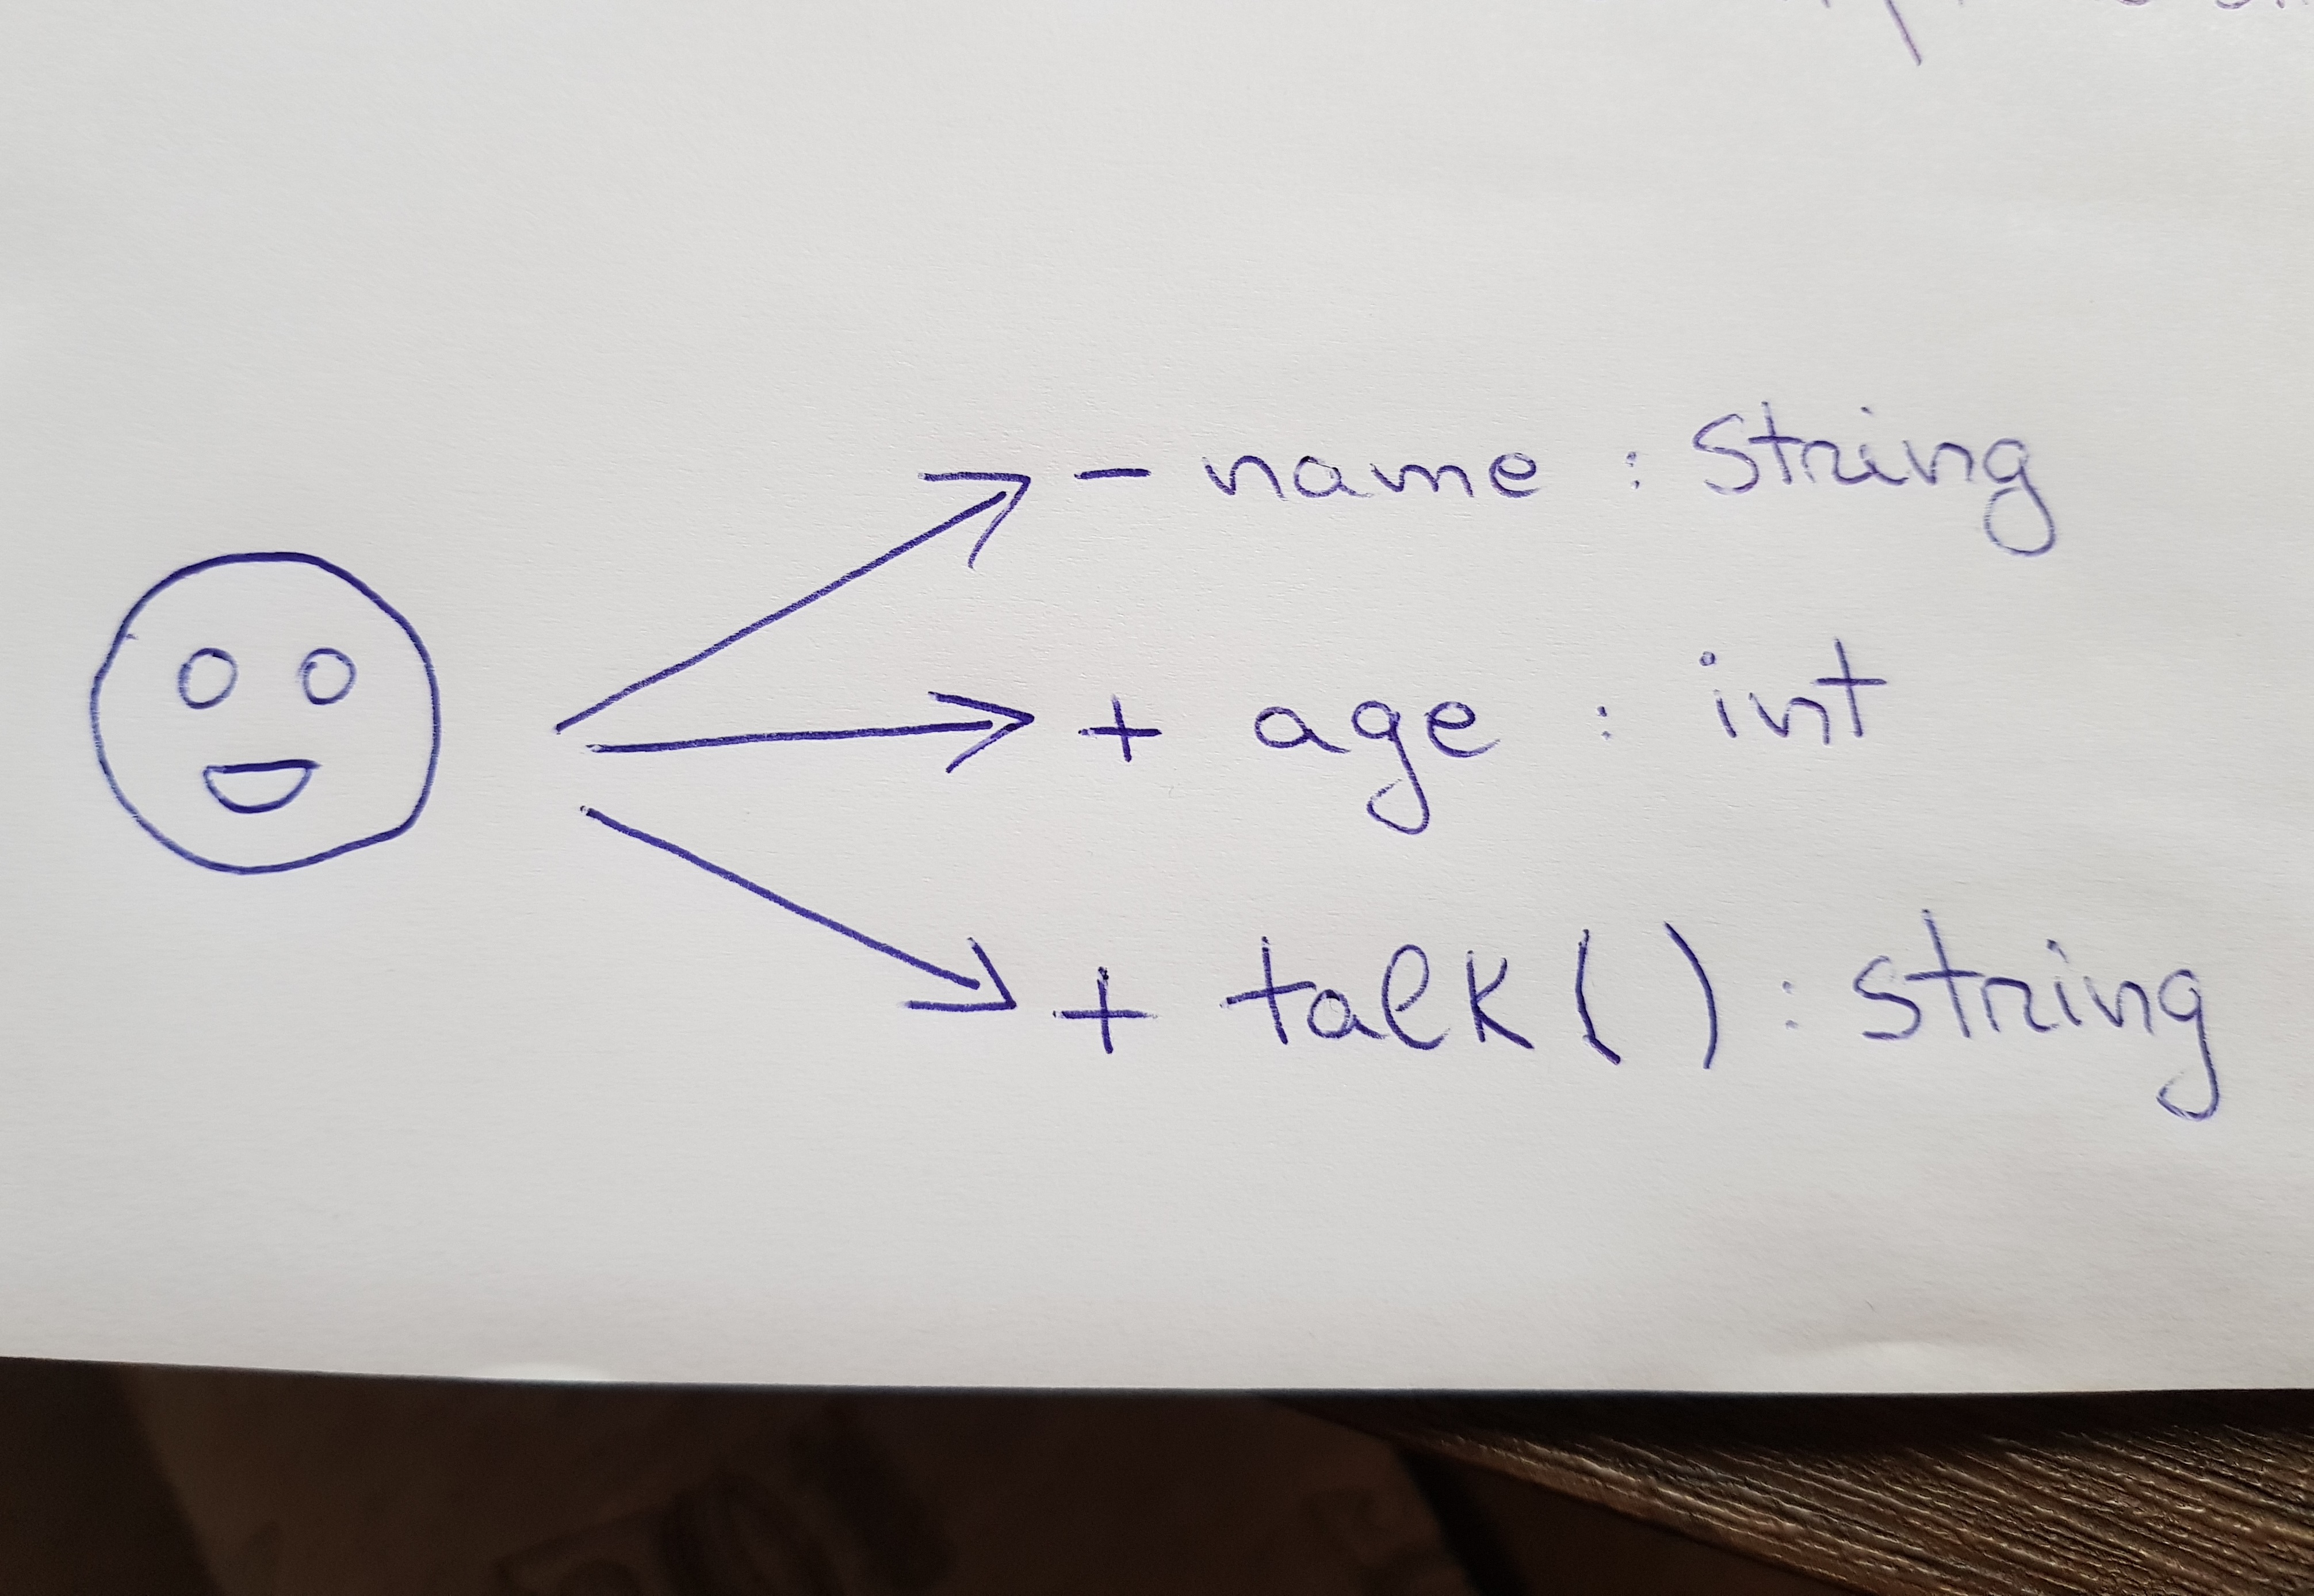 - name : String
+ age : int
+ talk() : string